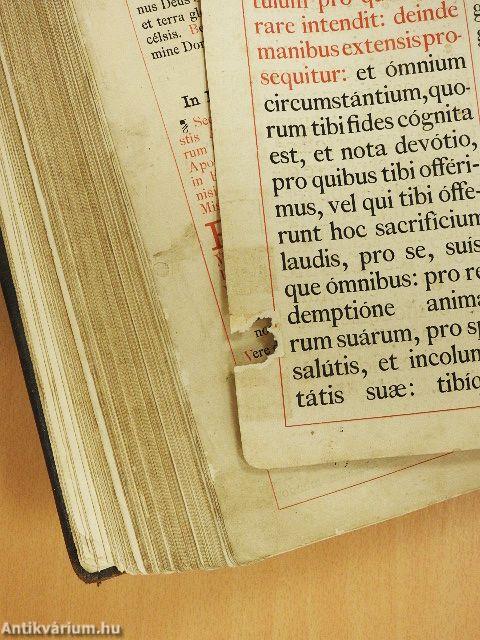 nus Deus
et terra gl
célsis.
mine Dom
In
stis
rum
Apo
in
nis
Mi
no
Vere
rare intendit: deinde
manibus extensis pro-
sequitur: et ómnium
circumstántium, quo-
rum tibi fides cógnita
est, et nota devótio,
pro quibus tibi offéri-
mus, vel qui tibi óffe-
runt hoc sacrificium
laudis, pro se, suís
que ómnibus: pro re
demptióne anima
rum suárum, pro sp
salútis, et incolum
tátis suæ: tibíq
Antikvárium.hu